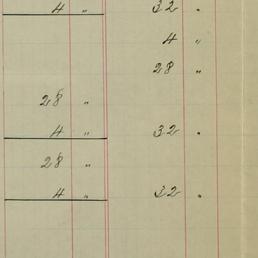 4 " 32 "
4 "
28 "
28 "
4 " 32 "
28 "
4 " 32 "